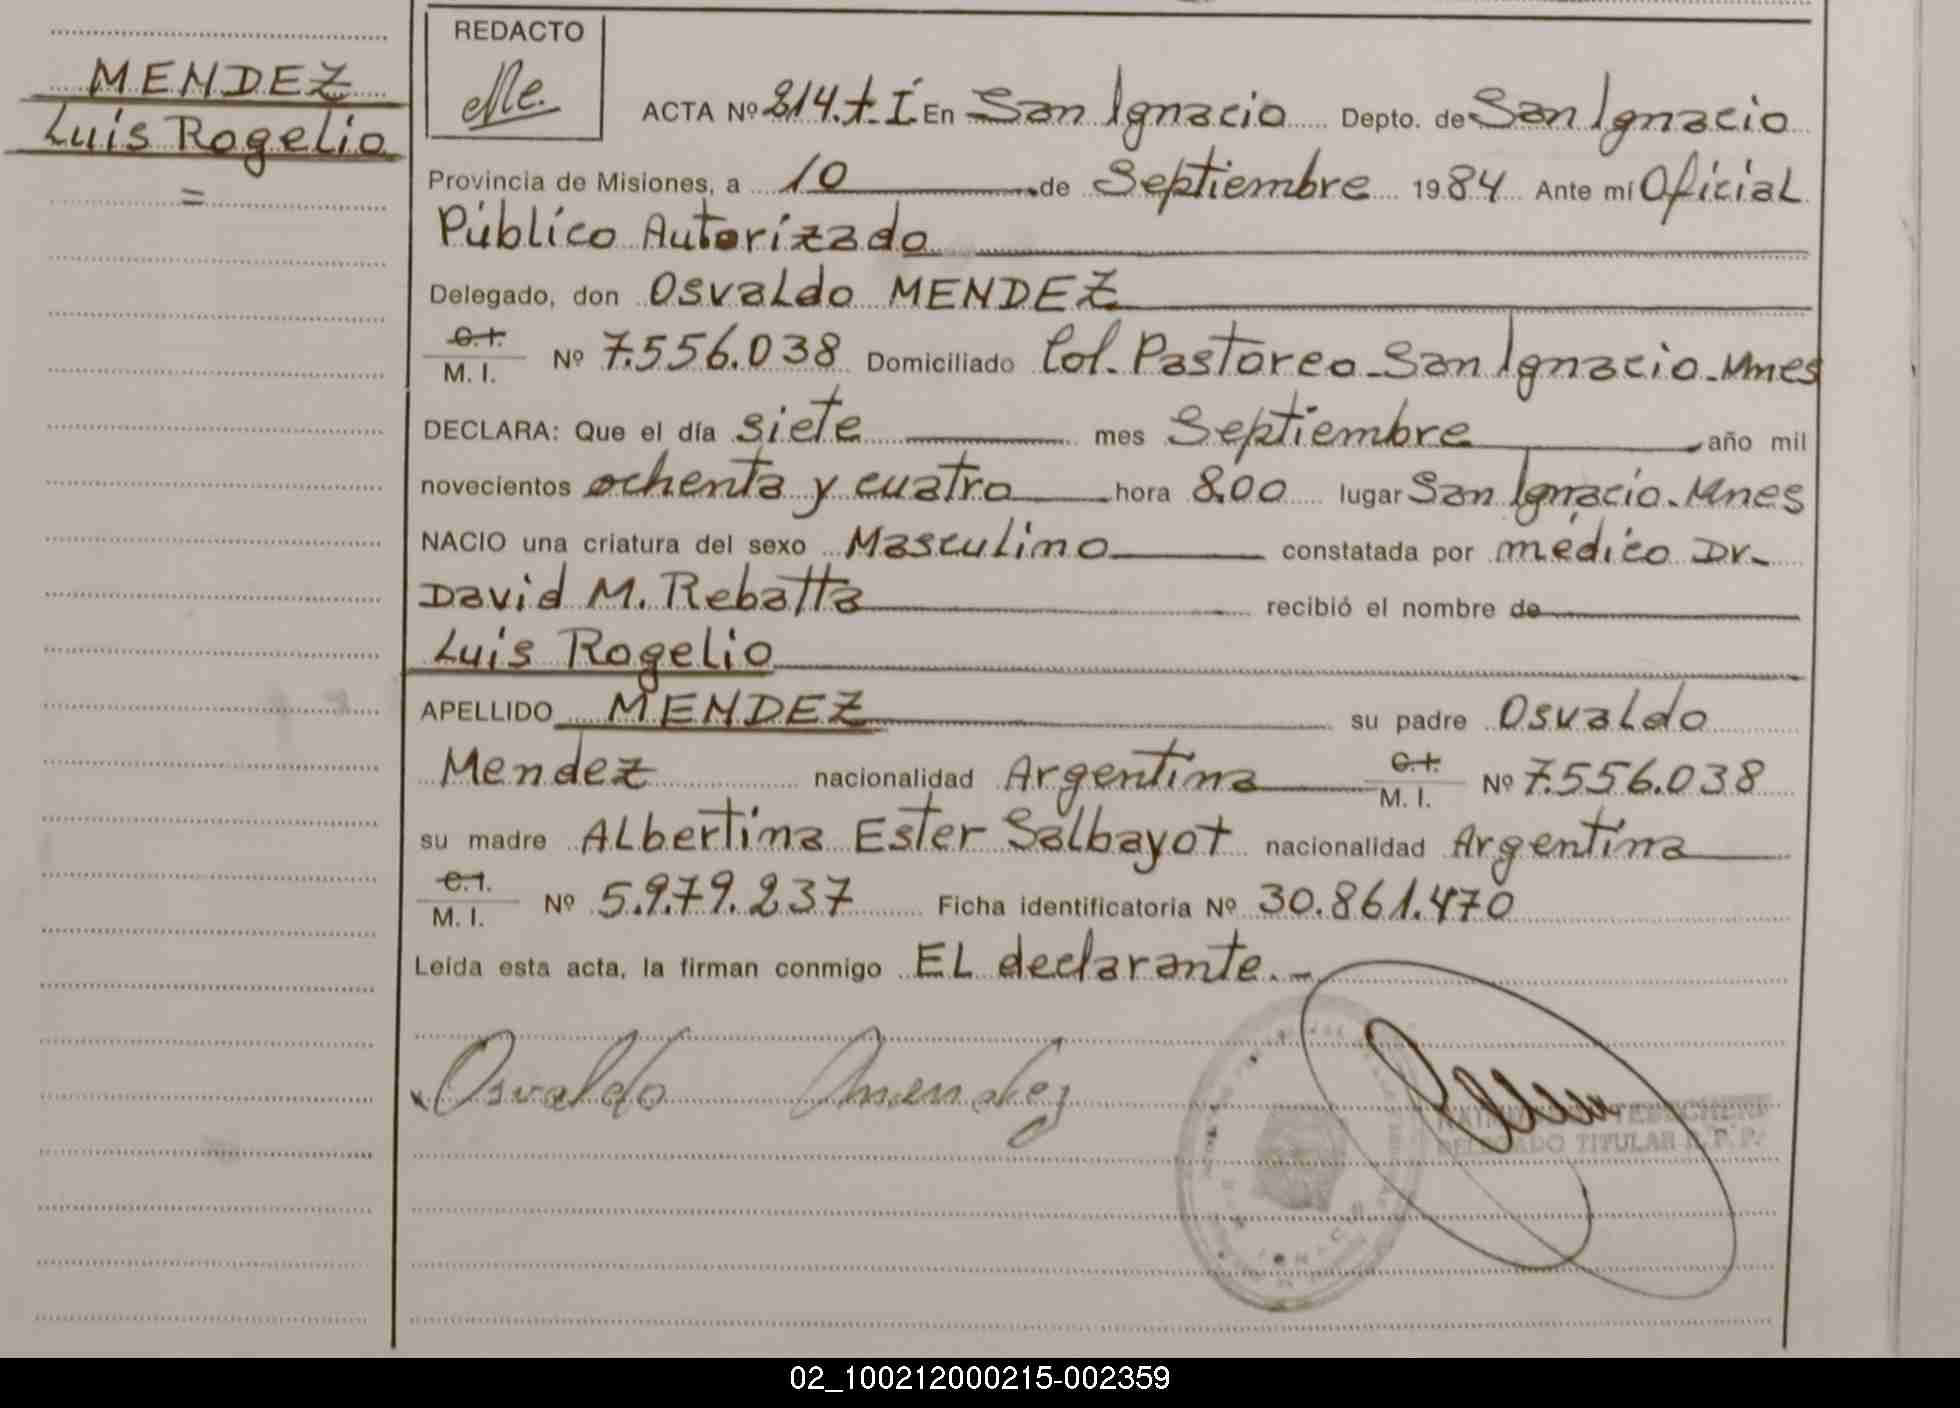 MENDEZ
Luis Rogelio
=
REDACTO
ACTA Nº 214.t.I En San Ignacio Depto. de San Ignacio
Provincia de Misiones, a 10 de Septiembre 1984 Ante mí Oficial
Público Autorizado
Delegado, don Osvaldo MENDEZ
C.I.
M. I. Nº 7.556.038 Domiciliado Col. Pastoreo - San Ignacio - Mnes
DECLARA: Que el día siete mes Septiembre año mil
novecientos ochenta y cuatro hora 8.00 lugar San Ignacio - Mnes
NACIO una criatura del sexo Masculino constatada por médico Dr.
David M. Rebatta recibió el nombre de
Luis Rogelio
APELLIDO MENDEZ su padre Osvaldo
Mendez nacionalidad Argentina C.I. M. I. Nº 7.556.038
su madre Albertina Ester Salbayot nacionalidad Argentina
C.I.
M. I. Nº 5.979.237 Ficha identificatoria Nº 30.861.470
Leída esta acta, la firman conmigo El declarante. -
Osvaldo Mendez
DELEGADO TITULAR R. P. P.
02_100212000215-002359